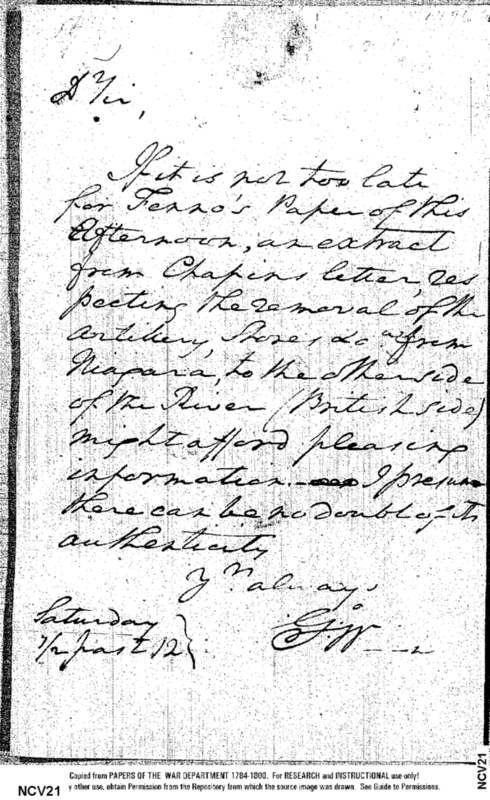 Dr Sir,
If it is not too late
for Fenno's Paper of this
Afternoon, an extract
from Chapins letter, res
pecting the removal of the
Artillery, Stores &ca from
Niagara, to the other side
of the River (British side)
might afford pleasing
information. I presume
there can be no doubt of its
authenticity
Yrs always
GW
Saturday
1/2 past 12
Copied from PAPERS OF THE WAR DEPARTMENT 1784-1800. For RESEARCH and INSTRUCTIONAL use only!
y other use, obtain Permission from the Repository from which the source image was drawn. See Guide to Permissions.
NCV21
NCV21